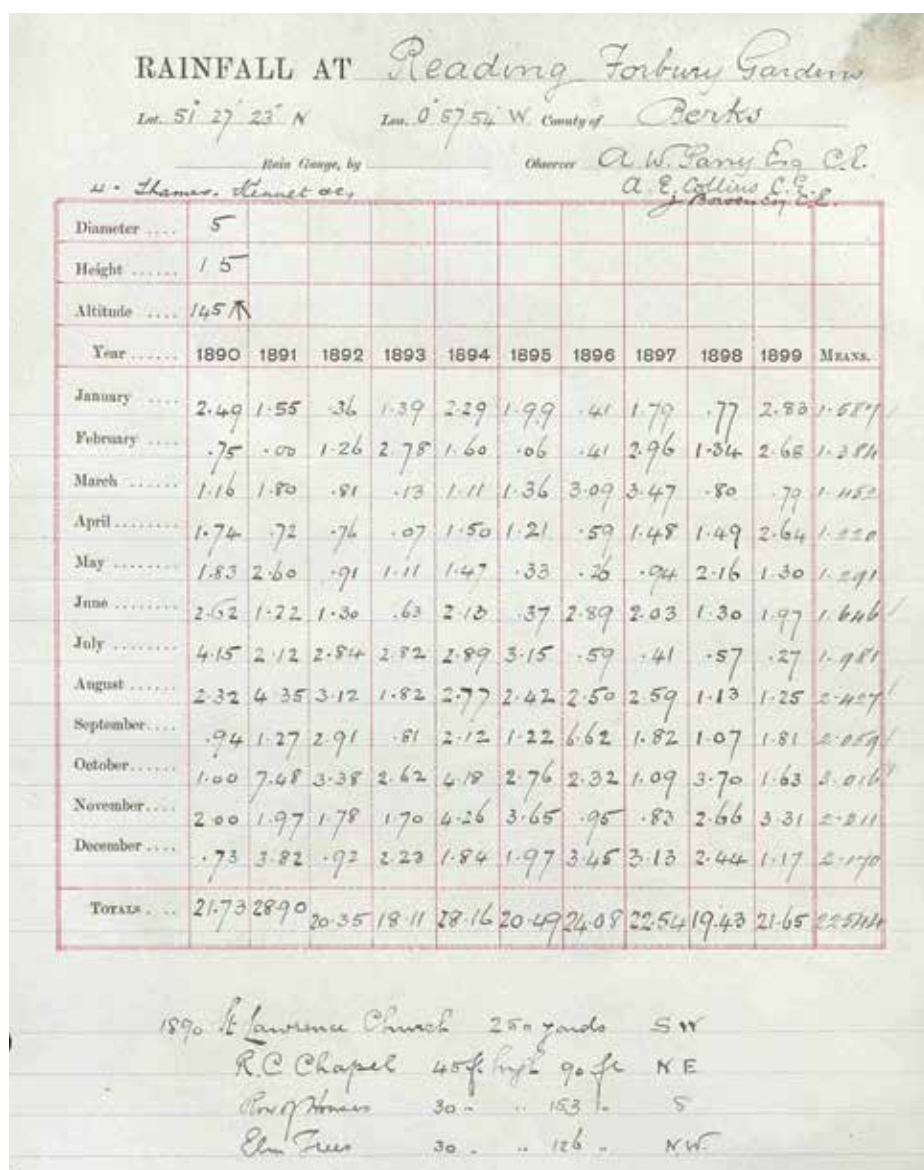 RAINFALL AT Reading Forbury Gardens
Lat. 51° 27' 23" N Lon. 0° 57' 54" W. County of Berks
Rain Gauge, by Observer A. W. Parry Esq C.E.
4. Thames. Kennet &c, A. E. Collins C.E.
J. Bowen Esq C.E.
Diameter .... 5
Height ...... 15
Altitude .... 145
Year ...... 1890 1891 1892 1893 1894 1895 1896 1897 1898 1899 MEANS.
January .... 2.49 1.55 .36 1.39 2.29 1.99 .41 1.79 .77 2.83 1.587
February .... .75 .00 1.26 2.78 1.60 .06 .41 2.96 1.34 2.68 1.384
March ...... 1.16 1.80 .81 .13 1.11 1.36 3.09 3.47 .80 .79 1.452
April ........ 1.74 .72 .76 .07 1.50 1.21 .59 1.48 1.49 2.64 1.220
May ........ 1.83 2.60 .91 1.11 1.47 .33 .26 .94 2.16 1.30 1.291
June ........ 2.62 1.22 1.30 .63 2.13 .37 2.89 2.03 1.30 1.97 1.646
July ........ 4.15 2.12 2.84 2.82 2.89 3.15 .59 .41 .57 .27 1.981
August ...... 2.32 4.35 3.12 1.82 2.77 2.42 2.50 2.59 1.13 1.25 2.427
September.... .94 1.27 2.91 .81 2.12 1.22 6.62 1.82 1.07 1.81 2.059
October...... 1.00 7.48 3.38 2.62 4.18 2.76 2.32 1.09 3.70 1.63 3.016
November.... 2.00 1.97 1.78 1.70 4.26 3.65 .95 .83 2.66 3.31 2.311
December .... .73 3.82 .92 2.23 1.84 1.97 3.45 3.13 2.44 1.17 2.170
TOTALS .... 21.73 28.90 20.35 18.11 28.16 20.49 24.08 22.54 19.43 21.65 22.544
1890 St Lawrence Church 250 yards SW
R.C Chapel 45 ft. high 90 ft NE
Row of Houses 30 " " 153 " S
Elm Trees 30 " " 126 " N.W.